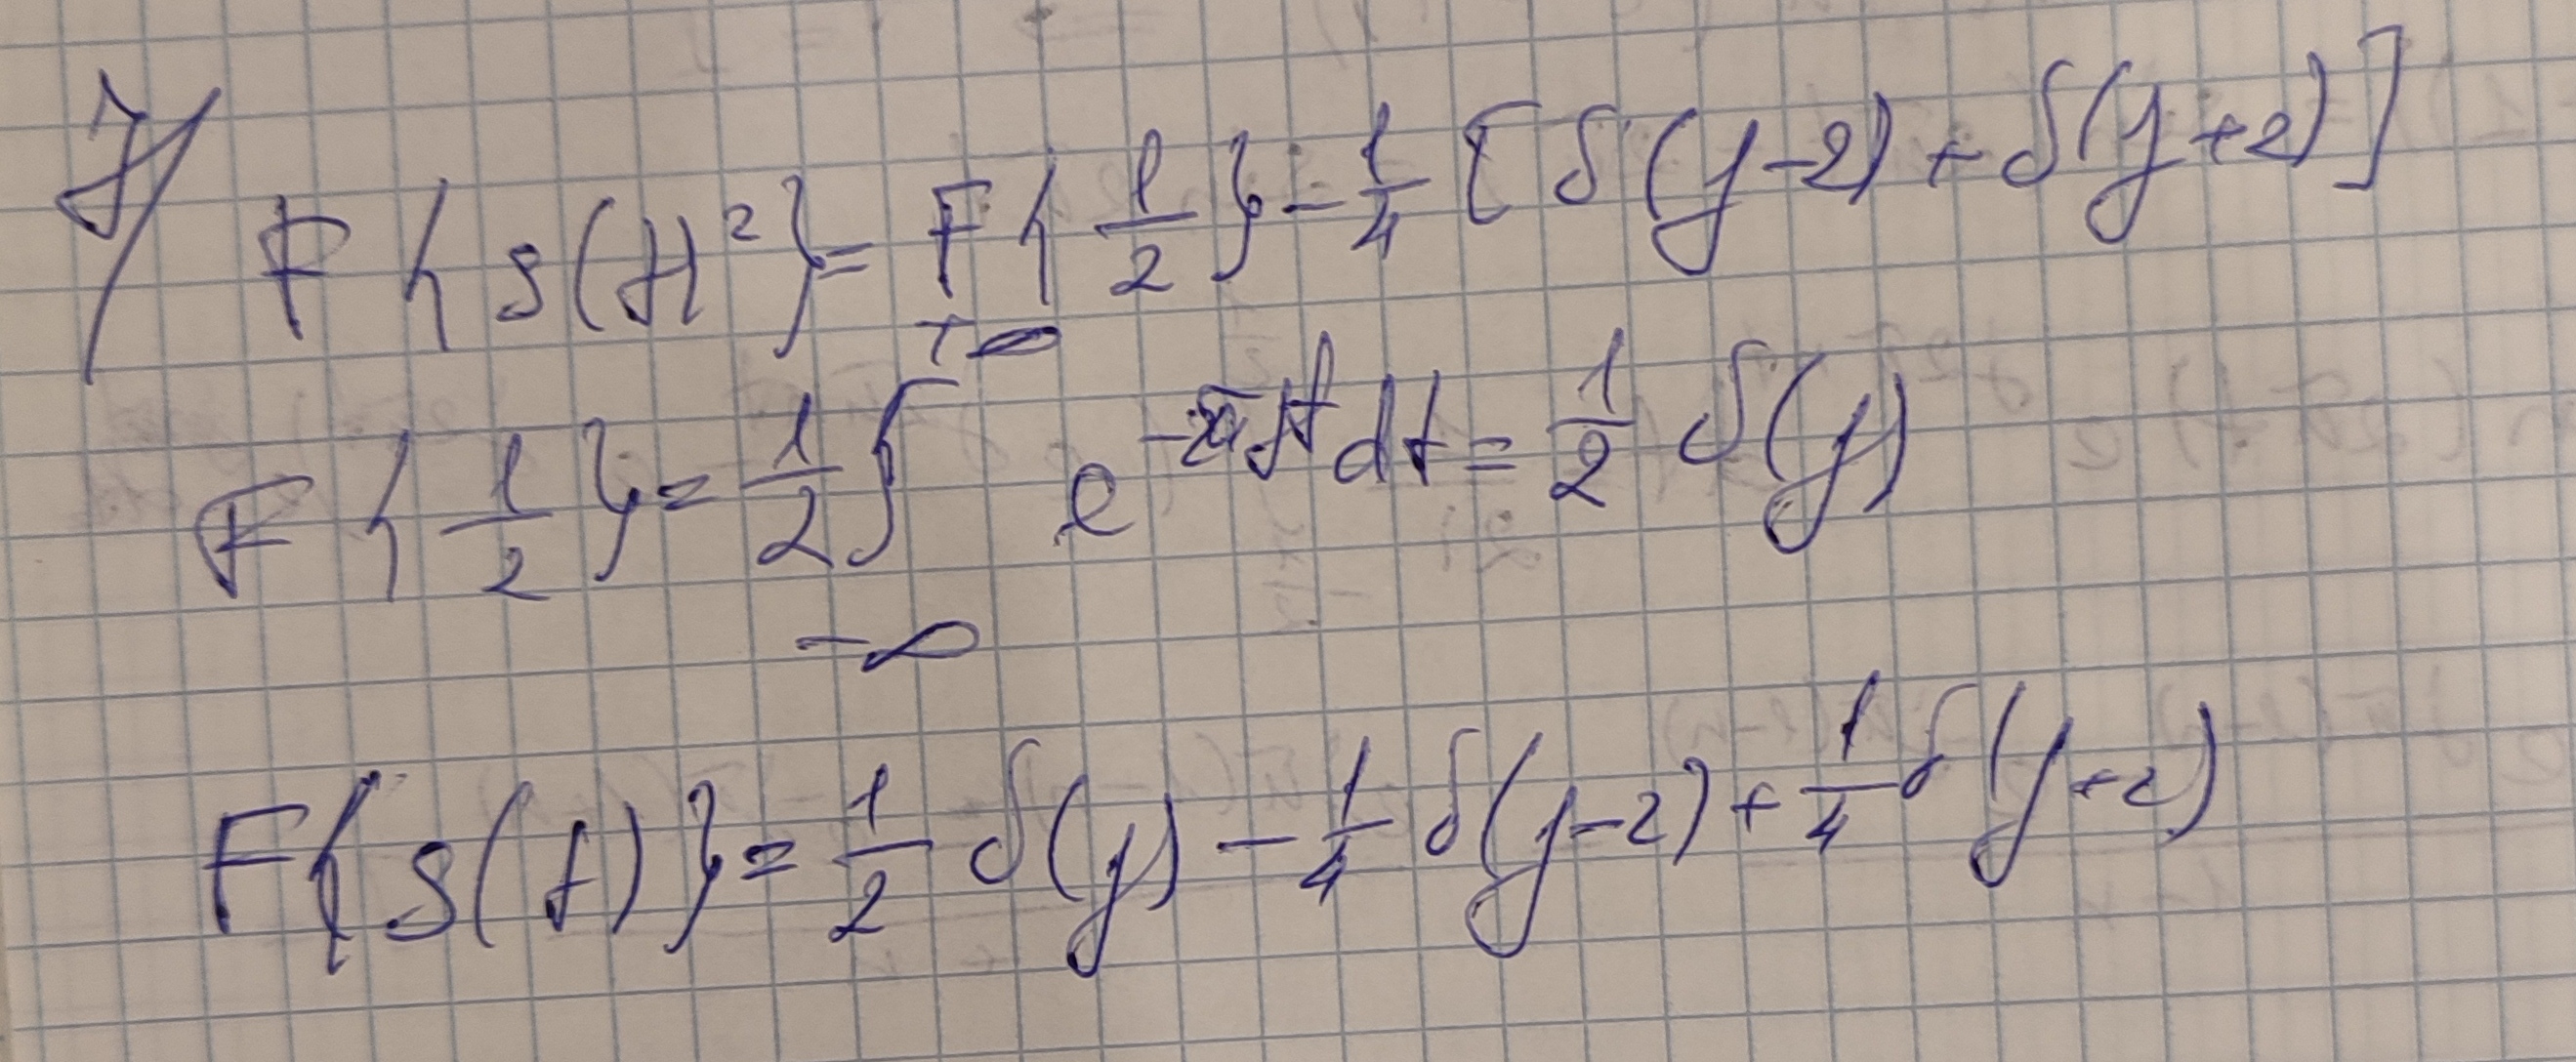 7/ F{s(t)²} = F{1/2} - 1/4 [δ(f-2) + δ(f+2)]
F{1/2} = 1/2 ∫_{-∞}^{+∞} e^{-2πjft} dt = 1/2 δ(f)
F{s(t)} = 1/2 δ(f) - 1/4 δ(f-2) + 1/4 δ(f+2)